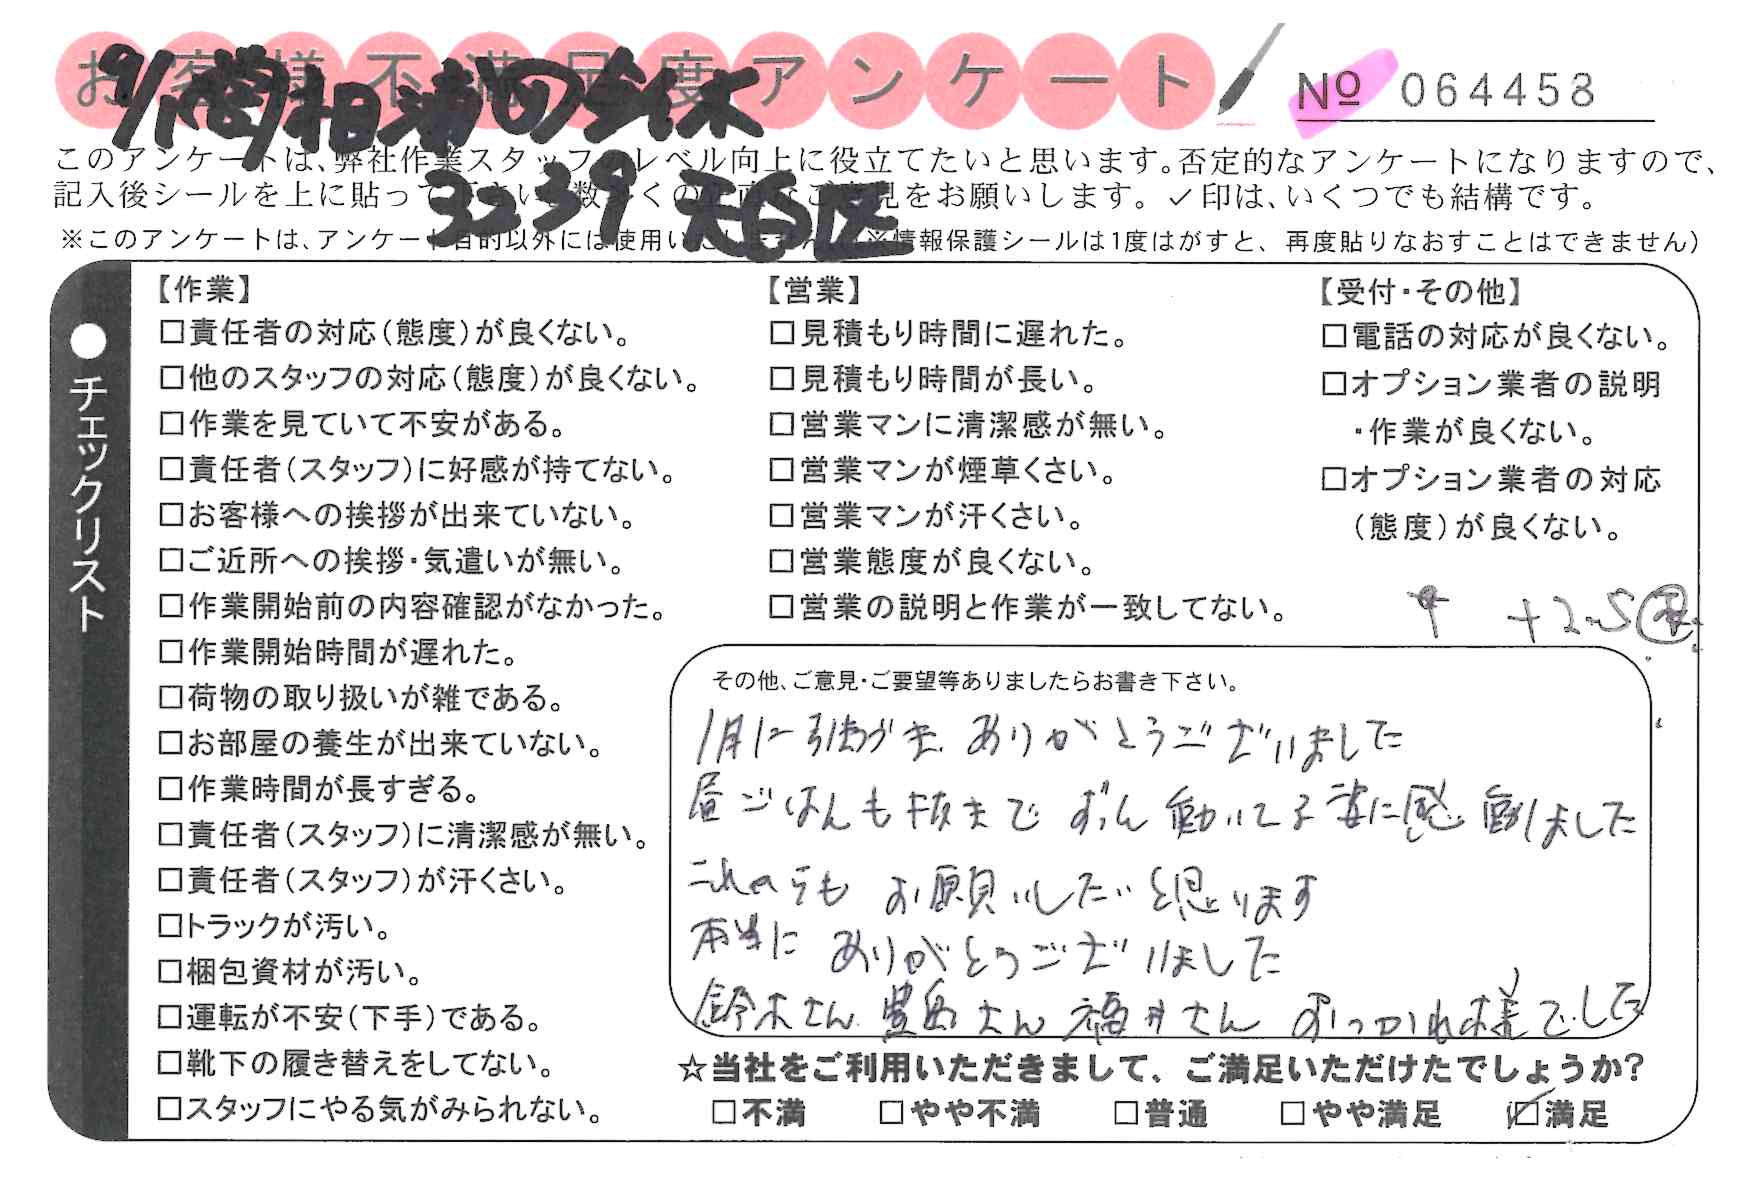 お客様不満足度アンケート
№ 064458
3239 天白区
このアンケートは、弊社作業スタッフのレベル向上に役立てたいと思います。否定的なアンケートになりますので、
記入後シールを上に貼って下さい。数多くの正直なご意見をお願いします。✓印は、いくつでも結構です。
※このアンケートは、アンケート目的以外には使用いたしません。(※情報保護シールは1度はがすと、再度貼りなおすことはできません)
●チェックリスト
【作業】
□責任者の対応(態度)が良くない。
□他のスタッフの対応(態度)が良くない。
□作業を見ていて不安がある。
□責任者(スタッフ)に好感が持てない。
□お客様への挨拶が出来ていない。
□ご近所への挨拶・気遣いが無い。
□作業開始前の内容確認がなかった。
□作業開始時間が遅れた。
□荷物の取り扱いが雑である。
□お部屋の養生が出来ていない。
□作業時間が長すぎる。
□責任者(スタッフ)に清潔感が無い。
□責任者(スタッフ)が汗くさい。
□トラックが汚い。
□梱包資材が汚い。
□運転が不安(下手)である。
□靴下の履き替えをしてない。
□スタッフにやる気がみられない。
【営業】
□見積もり時間に遅れた。
□見積もり時間が長い。
□営業マンに清潔感が無い。
□営業マンが煙草くさい。
□営業マンが汗くさい。
□営業態度が良くない。
□営業の説明と作業が一致してない。
【受付・その他】
□電話の対応が良くない。
□オプション業者の説明
・作業が良くない。
□オプション業者の対応
(態度)が良くない。
+2.5
その他、ご意見・ご要望等ありましたらお書き下さい。
ありがとうございました
昼ごはんも抜きで 働いてる姿に感動しました
これからも お願いしたいと思います
本当に ありがとうございました
鈴木さん 豊島さん 福井さん おつかれ様でした
☆当社をご利用いただきまして、ご満足いただけたでしょうか?
□不満 □やや不満 □普通 □やや満足 ☑満足